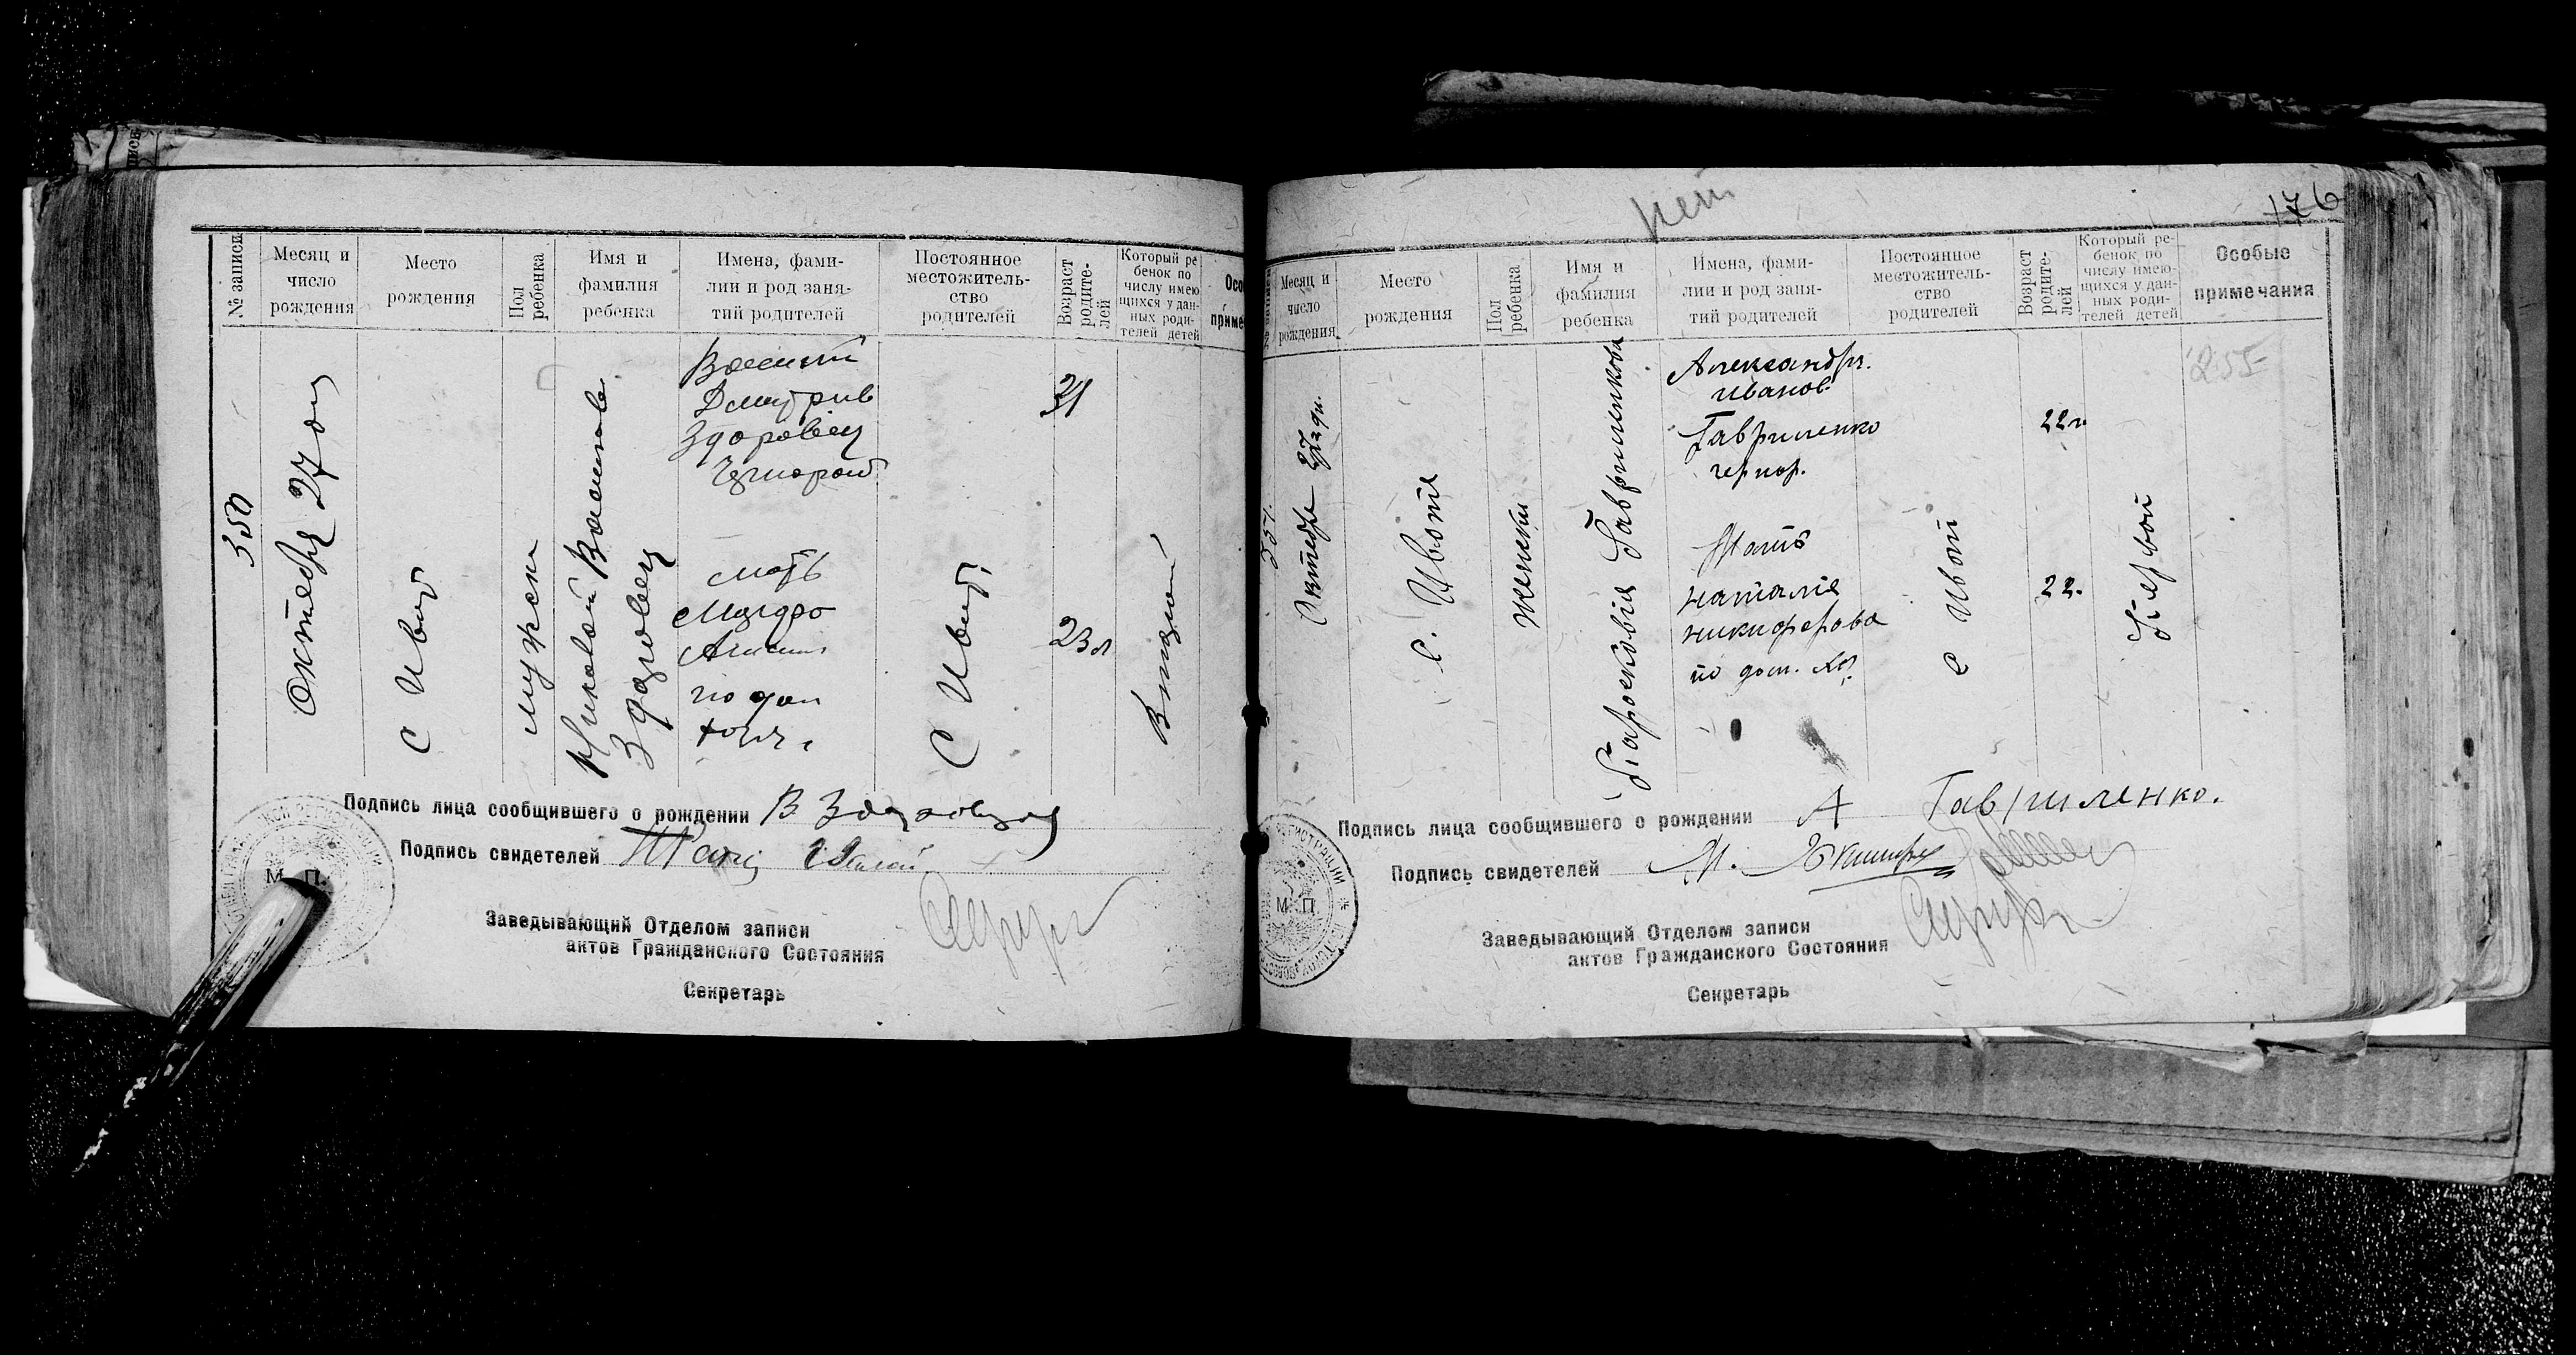 № записи
Месяц и
число
рождения
Место
рождения
Пол
ребенка
Имя и
фамилия
ребенка
Имена, фами-
лии и род заня-
тий родителей
Постоянное
местожитель-
ство
родителей
Возраст
родите-
лей
Который ре
бенок по
числу имею
щихся у дан-
ных роди-
телей детей
350
Октября 27 дня
с Ивот
мужски
Николай
Здоровец
Дмитрив
Здоровец
31
мать
по дом
23 л
с Ивот
Подпись лица сообщившего о рождении В Здоровец
Подпись свидетелей
М. П.
Заведывающий Отделом записи
актов Гражданского Состояния
Секретарь
нет
176
Месяц и
число
рождения
Место
рождения
Пол
ребенка
Имя и
фамилия
ребенка
Имена, фами-
лии и род заня-
тий родителей
Постоянное
местожитель-
ство
родителей
Возраст
родите-
лей
Который ре-
бенок по
числу имею-
щихся у дан-
ных роди-
телей детей
Особые
примечания
255
351.
Октебре 27 дн.
с. Ивоте
женски
Параоковия Гавриленкова
Александр.
Иванов
Гавриленко
чернор.
22 л.
Мать
Наталія
Никиферова
по дом. хоз.
с Ивот
22.
Первой
Подпись лица сообщившего о рождении А Гавриленко.
Подпись свидетелей М.
М. П.
Заведывающий Отделом записи
актов Гражданского Состояния
Секретарь